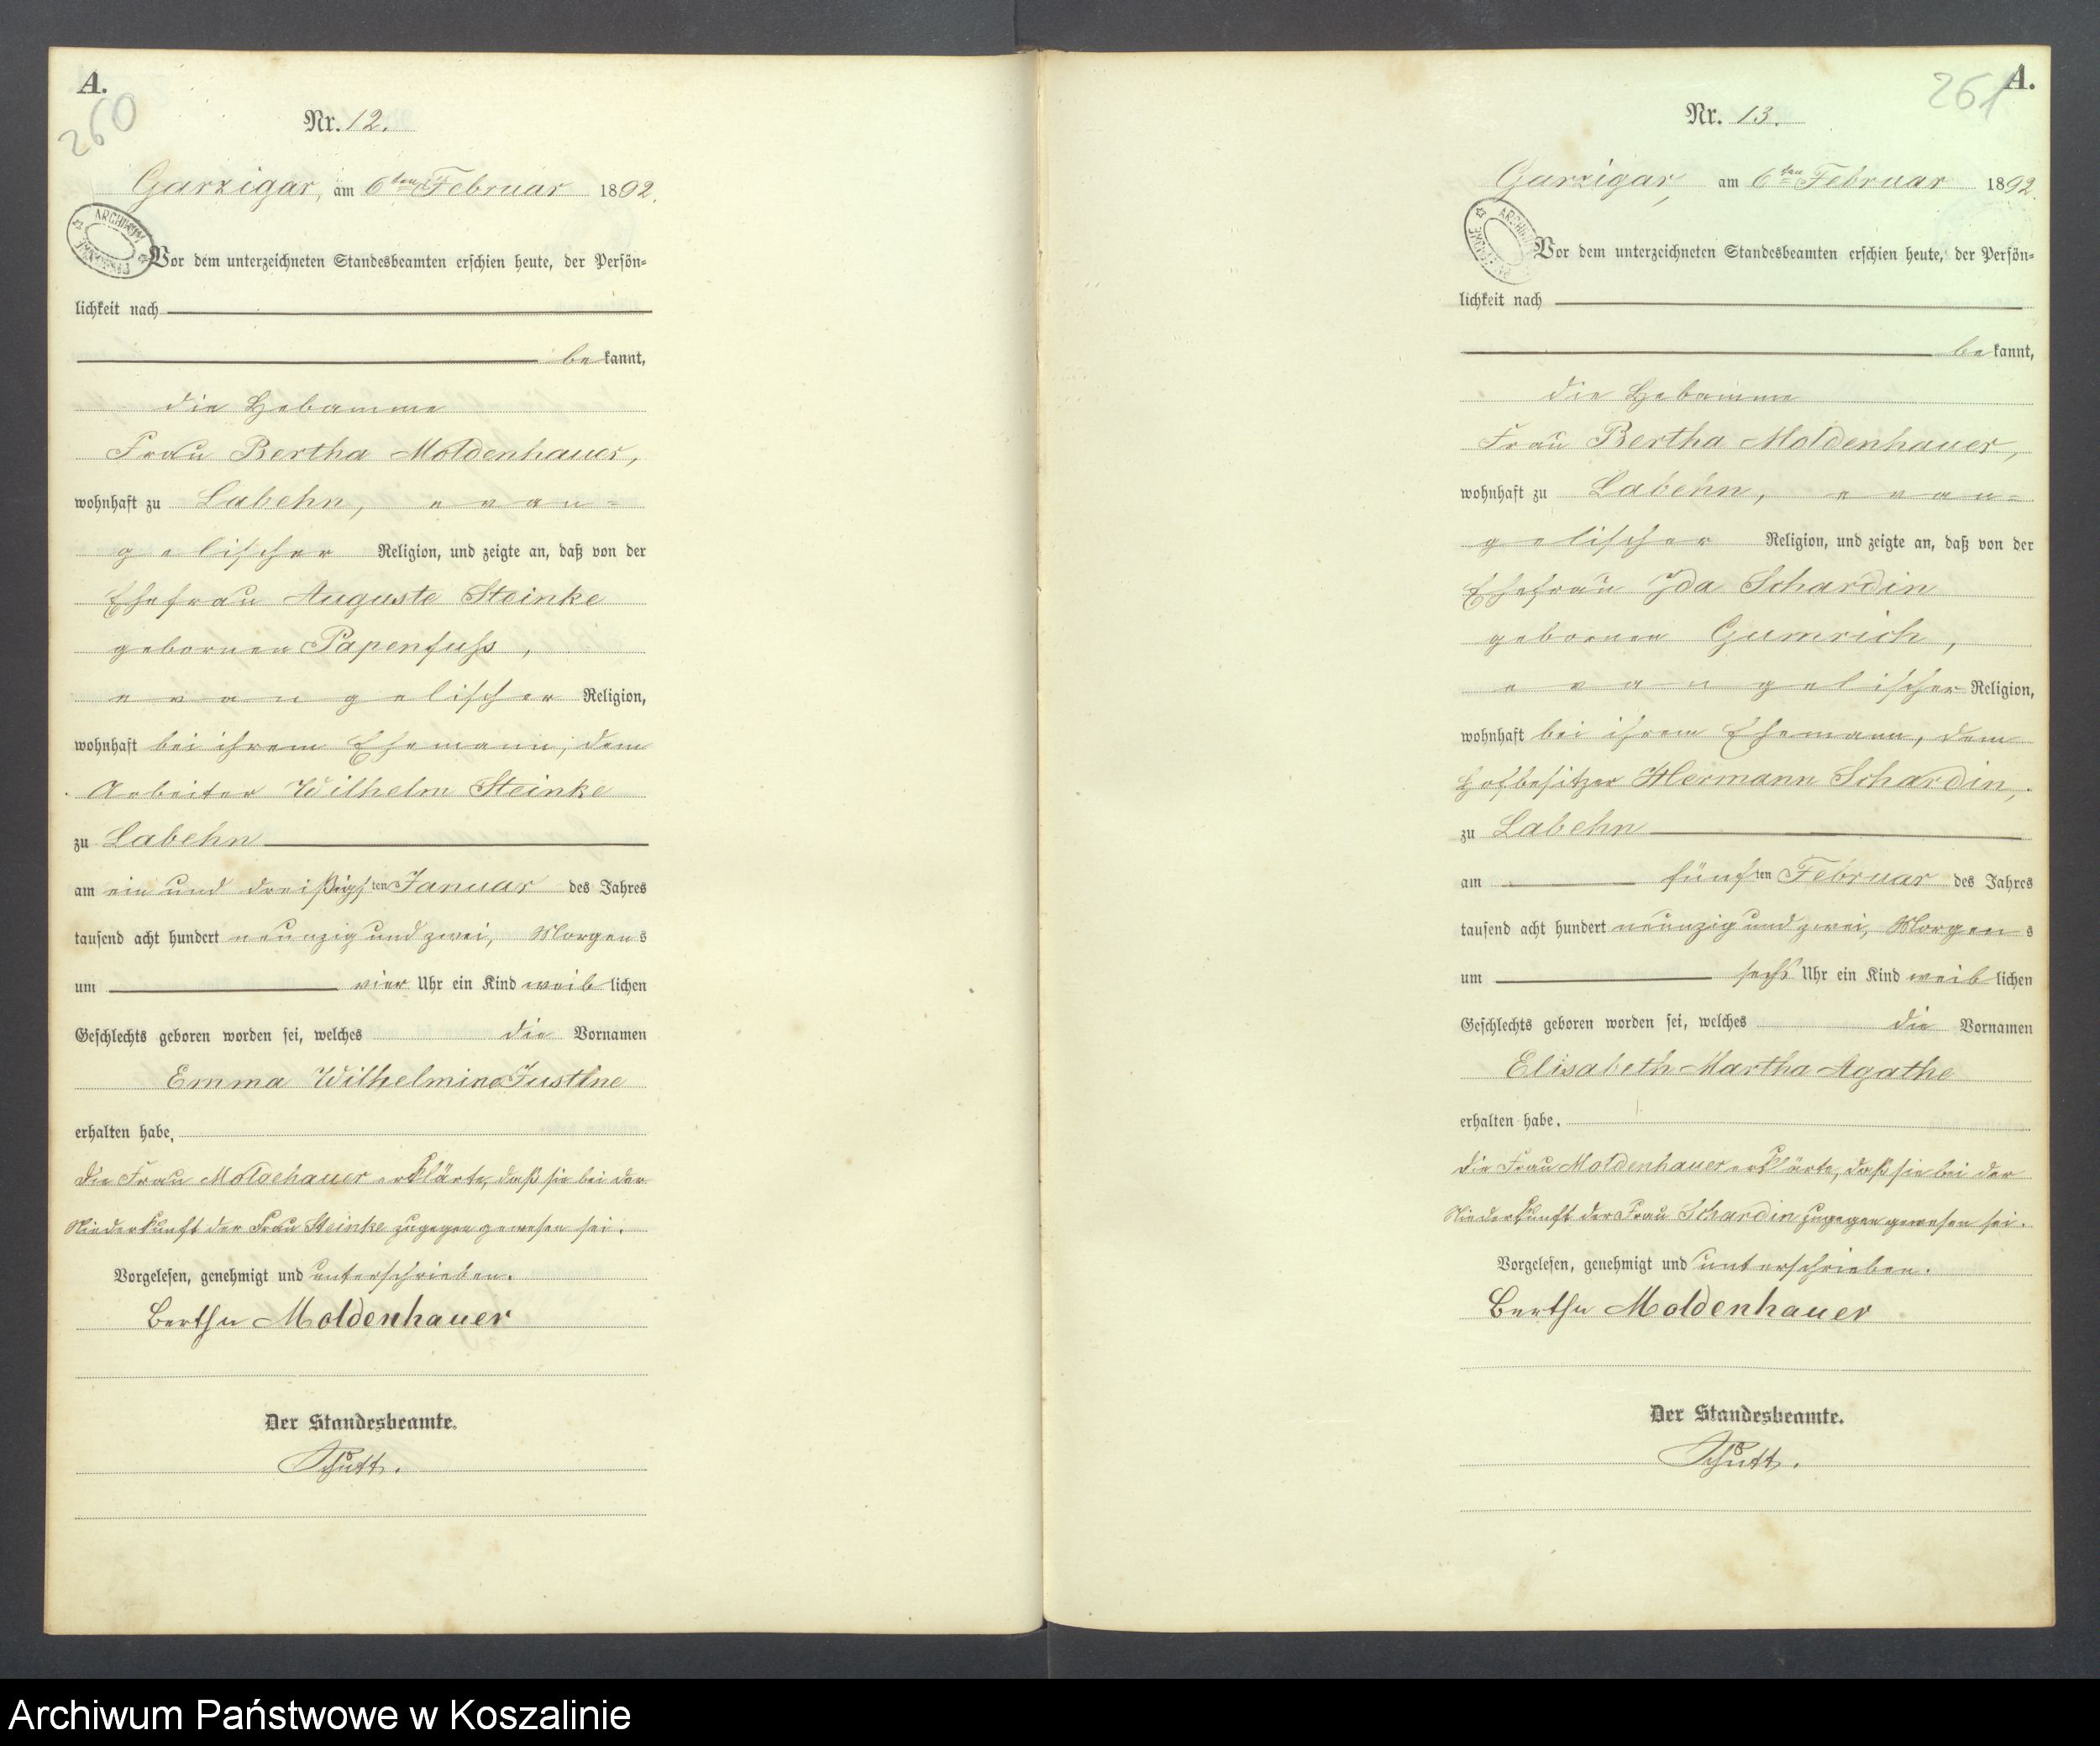 A.
260
Nr. 12.
Garzigar, am 6ten Februar 1892.
ARCHIWUM
Vor dem unterzeichneten Standesbeamten erschien heute, der Persön-
lichkeit nach
be kannt,
die Hebamme
Frau Bertha Moldenhauer,
wohnhaft zu Labehn, evan-
gelischer Religion, und zeigte an, daß von der
Ehefrau Auguste Steinke
gebornen Papenfuß,
evangelischer Religion,
wohnhaft bei ihrem Ehemann, dem
Arbeiter Wilhelm Steinke
zu Labehn
am ein und dreißigsten Januar des Jahres
tausend acht hundert neunzig und zwei, Morgens
um vier Uhr ein Kind weiblichen
Geschlechts geboren worden sei, welches die Vornamen
Emma Wilhelmine Justine
erhalten habe.
Die Frau Moldehauer erklärte, daß sie bei der
Niederkunft der Frau Steinke zugegen gewesen sei.
Vorgelesen, genehmigt und unterschrieben.
Bertha Moldenhauer
Der Standesbeamte.
261
A.
Nr. 13.
Garzigar, am 6ten Februar 1892.
ARCHIWUM
Vor dem unterzeichneten Standesbeamten erschien heute, der Persön-
lichkeit nach
be kannt,
die Hebamme
Frau Bertha Moldenhauer,
wohnhaft zu Labehn, evan-
gelischer Religion, und zeigte an, daß von der
Ehefrau Ida Schardin
gebornen Gumrich,
evangelischer Religion,
wohnhaft bei ihrem Ehemann, dem
Hofbesitzer Hermann Schardin,
zu Labehn
am fünften Februar des Jahres
tausend acht hundert neunzig und zwei, Morgens
um sechs Uhr ein Kind weiblichen
Geschlechts geboren worden sei, welches die Vornamen
Elisabeth Martha Agathe
erhalten habe.
Die Frau Moldenhauer erklärte, daß sie bei der
Niederkunft der Frau Schardin zugegen gewesen sei.
Vorgelesen, genehmigt und unterschrieben.
Bertha Moldenhauer
Der Standesbeamte.
Archiwum Państwowe w Koszalinie